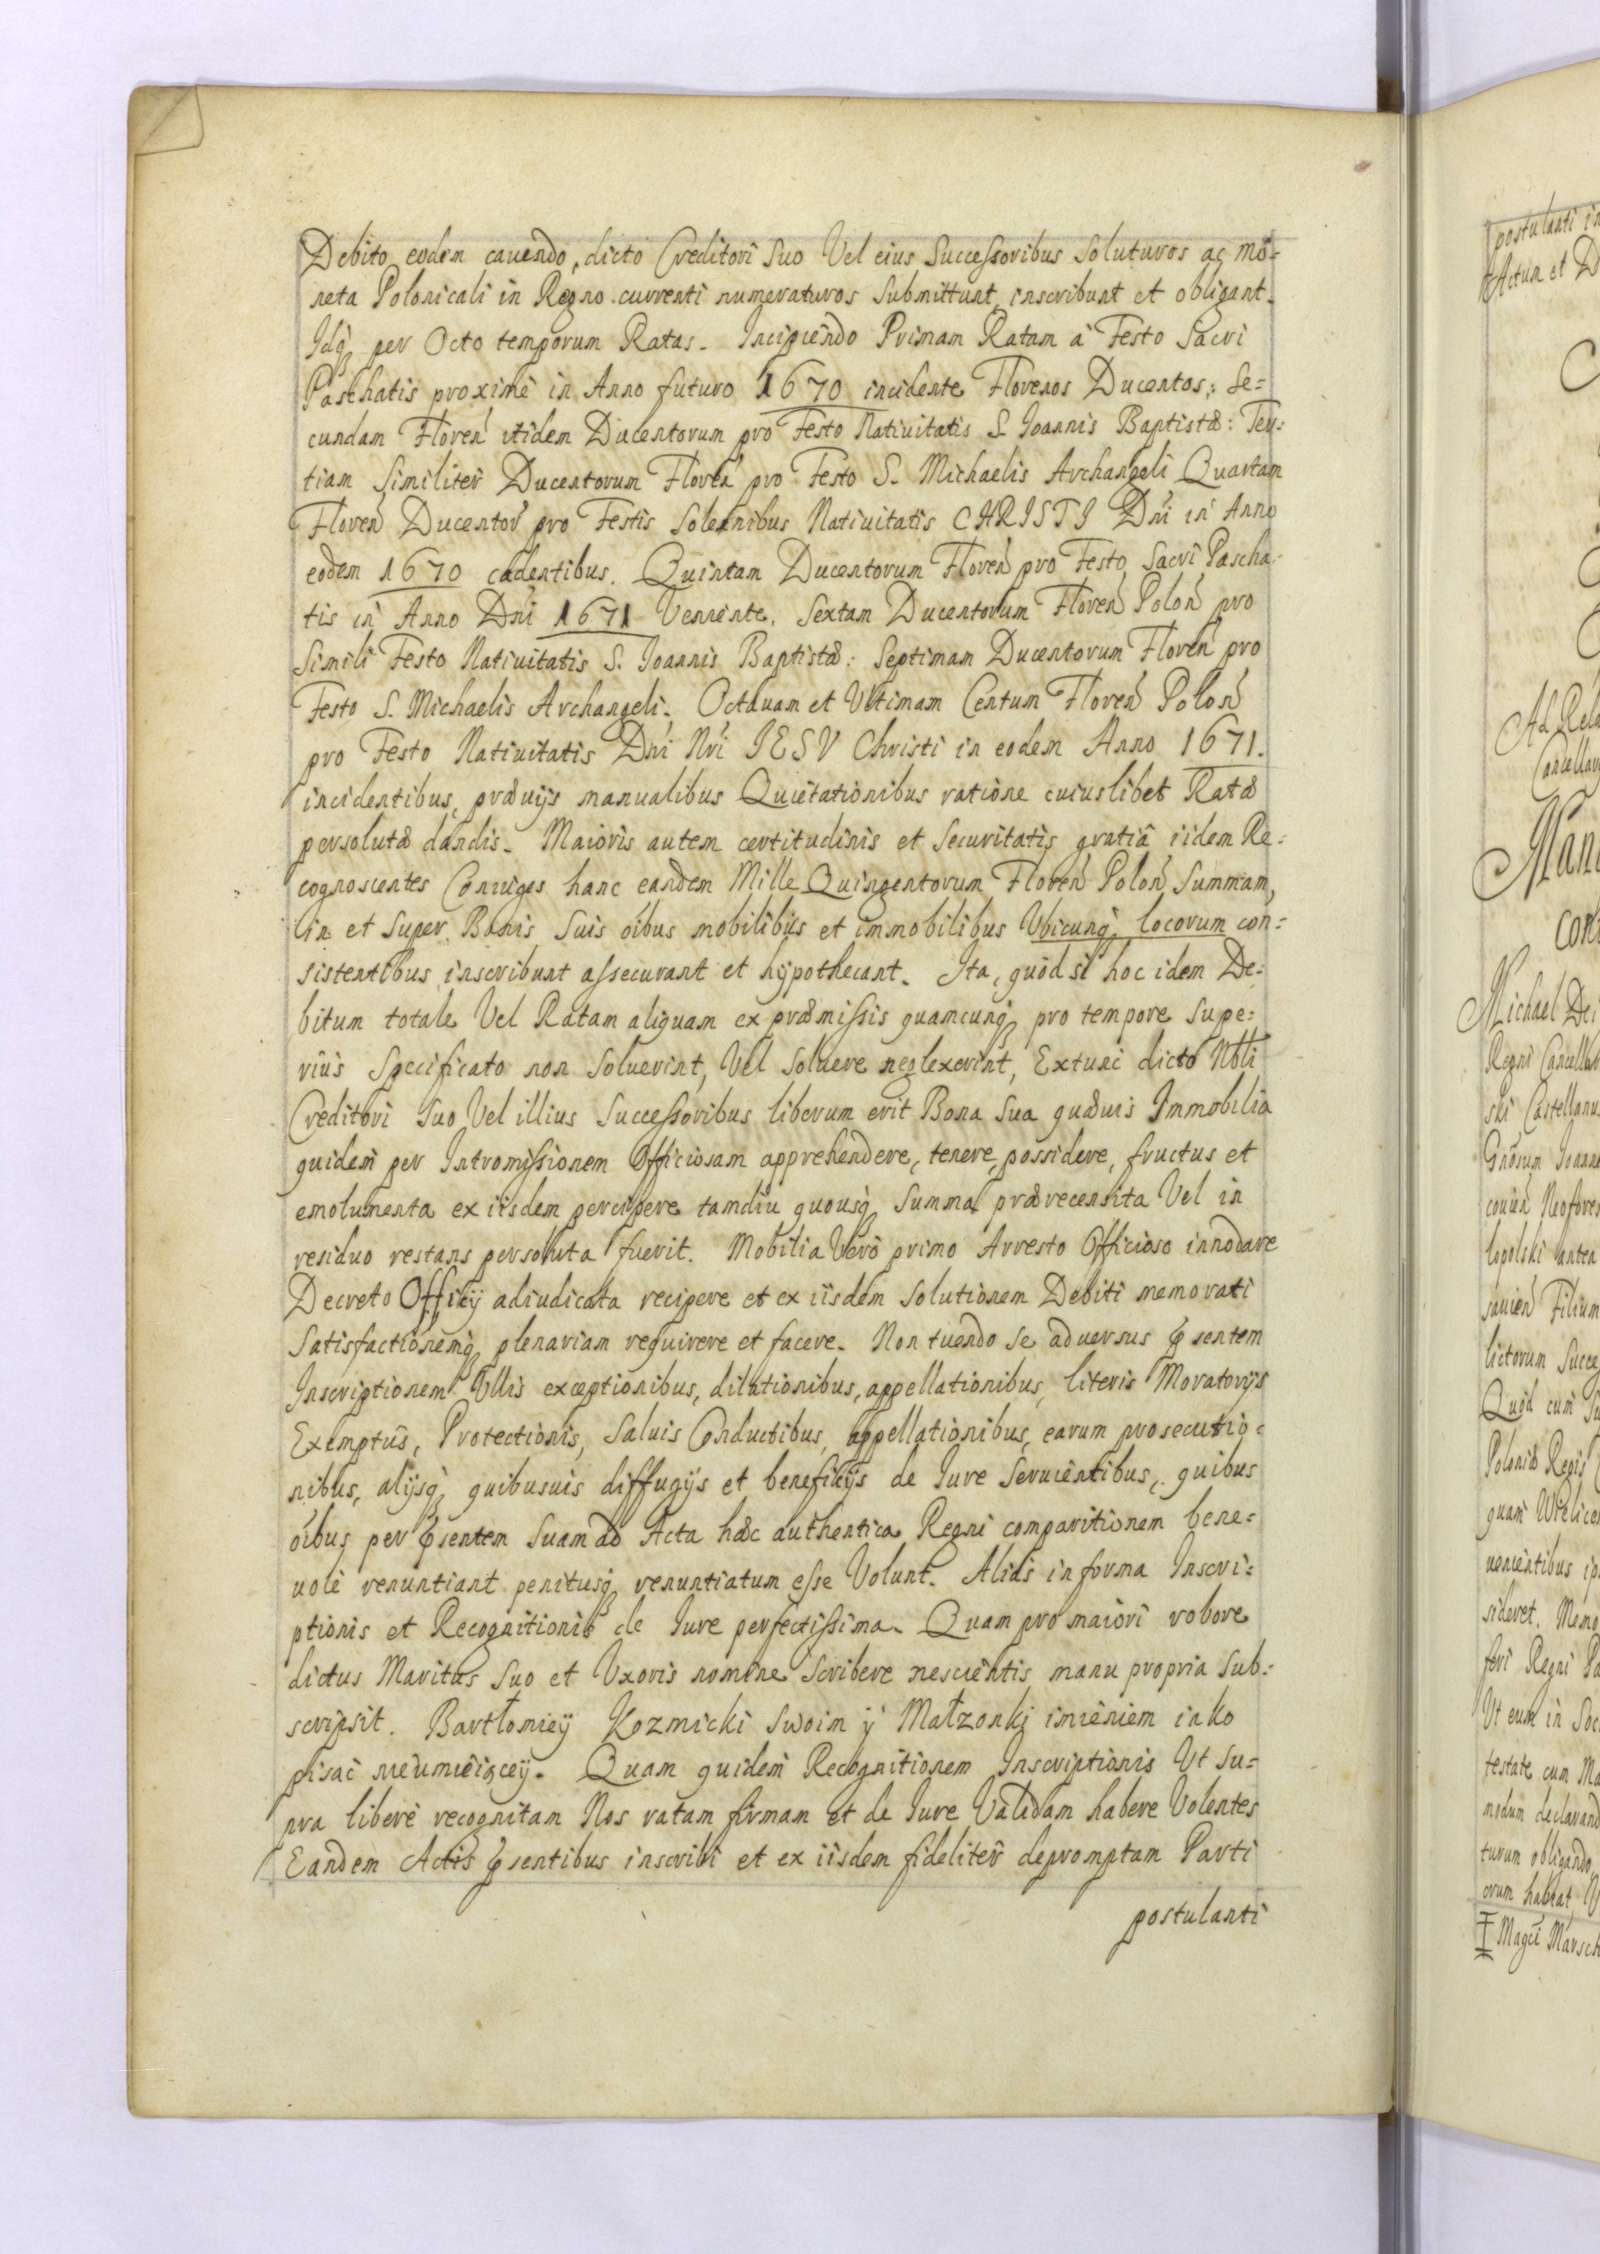 Debito eodem cauendo, dicto Creditori Suo Vel eius Successoribus Soluturos ac Mo=
neta Polonicali in Regno currenti numeraturos Submittunt, inscribunt et obligant.
Idq per Octo temporum Ratas. Incipiendo Primam Ratam à Festo Sacri
Paschatis proximè in Anno futuro 1670 incidente Florenos Ducentos; Se=
cundam Floren itidem Ducentorum pro Festo Natiuitatis S. Ioannis Baptistæ: Ter=
tiam Similiter Ducentorum Floren pro Festo S. Michaelis Archangeli Quartam
Floren Ducentor pro Festis Solennibus Natiuitatis CHRISTI Dni in Anno
eodem 1670 cadentibus. Quintam Ducentorum Floren pro Festo Sacri Pascha=
tis in Anno Dni 1671 Veniente. Sextam Ducentorum Floren Polon pro
Simili Festo Natiuitatis S. Ioannis Baptistæ: Septimam Ducentorum Floren pro
Festo S. Michaelis Archangeli. Octauam et Vltimam Centum Floren Polon
pro Festo Natiuitatis Dni Nri IESV Christi in eodem Anno 1671.
incidentibus, præuijs manualibus Quietationibus ratione cuiuslibet Ratæ
persolutæ dandis. Maioris autem certitudinis et Securitatis gratiâ iidem Re=
cognoscentes Coniuges hanc eandem Mille Quingentorum Floren Polon Summam,
in et Super Bonis Suis oibus mobilibus et immobilibus Vbicunq locorum con=
sistentibus inscribunt assecurant et hypothecant. Ita, quòd si hoc idem De=
bitum totale Vel Ratam aliquam ex præmissis quamcunq pro tempore Supe=
riùs Specificato non Soluerint, Vel Soluere neglexerint, Extunc dicto Nbli
Creditori Suo Vel illius Successoribus liberum erit Bona Sua quæuis Immobilia
quidem per Intromissionem Officiosam apprehendere, tenere, possidere, fructus et
emolumenta ex iisdem percipere tamdiu quousq Summa prærecensita Vel in
residuo restans persoluta fuerit. Mobilia Verò primo Arresto Officioso innodare
Decreto Officij adiudicata recipere et ex iisdem Solutionem Debiti memorati
Satisfactionemq plenariam requirere et facere. Non tuendo Se aduersus psentem
Inscriptionem Vllis exceptionibus, dilationibus, appellationibus, literis Moratorijs
Exemptus, Protectionis, Saluis Conductibus, appellationibus, earum prosecutio=
nibus, alijsq quibusuis diffugijs et beneficijs de Iure Seruientibus, quibus
oibus per psentem Suam ad Acta hæc authentica Regni comparitionem bene=
uolè renuntiant penitusq renuntiatum esse Volunt. Aliàs in forma Inscri=
ptionis et Recognitionis de Iure perfectissima. Quam pro maiori robore
dictus Maritus Suo et Vxoris nomine Scribere nescientis manu propria Sub=
scripsit. Bartłomieÿ Kozmicki Swoim ÿ Małzonki imieniem iako
pisac nieumieiącey. Quam quidem Recognitionem Inscriptionis Vt Su=
pra liberè recognitam Nos ratam firmam et de Iure Validam habere Volentes
Eandem Actis psentibus inscribi et ex iisdem fideliter depromptam Parti
postulanti
postulanti in
Actum et D
Ad Rela
Cancellar
Michael Dei
Regni Cancellar
ski Castellanus
Ioanne
lopolski antea
Filium
Quod cum Su
Polonia Regis
uenientibus ip
sideret. Memo
feri Regni Pa
Vt eum in Soc
testate cum Ma
modum declarand
turum obligando
orum habeat, V
Magci Marsch